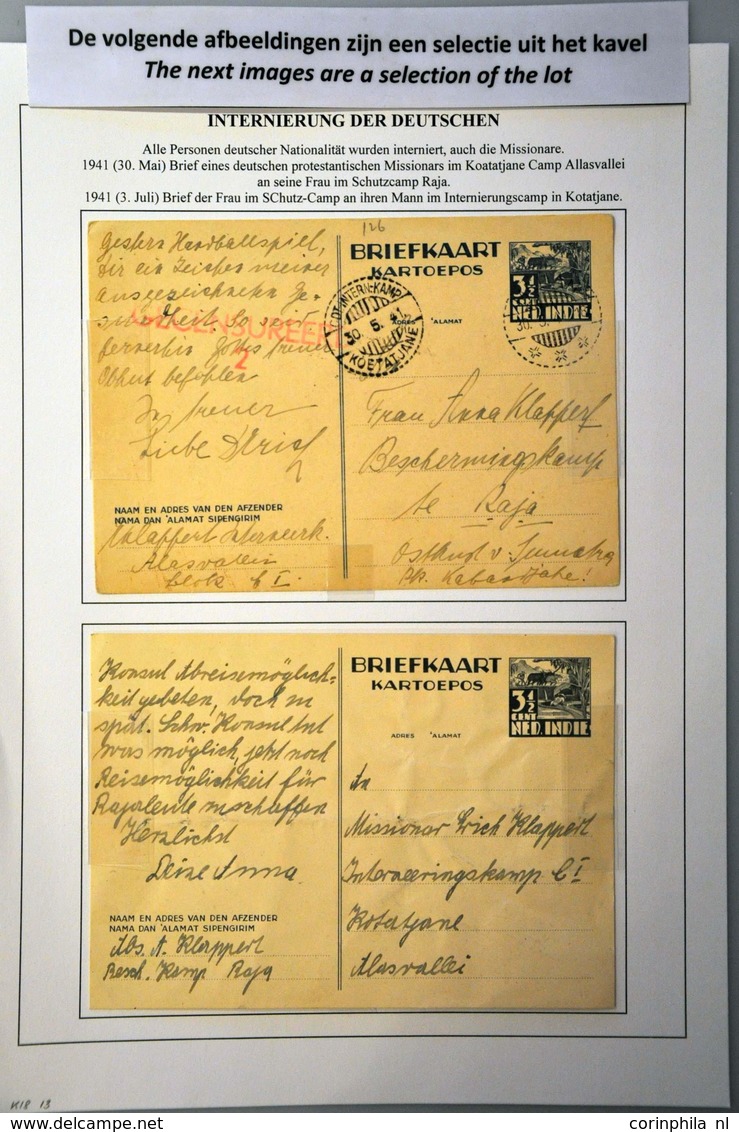 De volgende afbeeldingen zijn een selectie uit het kavel
The next images are a selection of the lot
INTERNIERUNG DER DEUTSCHEN
Alle Personen deutscher Nationalität wurden interniert, auch die Missionare.
1941 (30. Mai) Brief eines deutschen protestantischen Missionars im Koatatjane Camp Allasvallei
an seine Frau im Schutzcamp Raja.
1941 (3. Juli) Brief der Frau im SChutz-Camp an ihren Mann im Internierungscamp in Kotatjane.
126
Gestern Handballspiel,
dir ein Zeichen meiner
ausgezeichneten Ge-
sundheit. So seid
fernerhin Gottes treuer
Obhut befohlen
In treuer
Liebe Erich
GECENSUREERD
2
NAAM EN ADRES VAN DEN AFZENDER
NAMA DAN 'ALAMAT SIPENGIRIM
Klappert
Alasvallei
Blok C I.
BRIEFKAART
KARTOEPOS
3½
CENT
NED. INDIE
INTERN-KAMP
30.5.41
KOETATJANE
ADRES 'ALAMAT
Frau Anna Klappert
Beschermingskamp
te Raja
Ostkust v. Sumatra
Pk. Kabandjahe!
Konsul Abreisemöglich-
keit gebeten, doch zu
spät. Schw. Konsul tut
was möglich, jetzt noch
Reisemöglichkeit für
Rajaleute zu schaffen
Herzlichst
Deine Anna
NAAM EN ADRES VAN DEN AFZENDER
NAMA DAN 'ALAMAT SIPENGIRIM
Abs. A. Klappert
Besch. Kamp Raja
BRIEFKAART
KARTOEPOS
3½
CENT
NED. INDIE
ADRES 'ALAMAT
An
Missionar Erich Klappert
Interneeringskamp C I
Kotatjane
Alasvallei
K18 13
corinphila nl